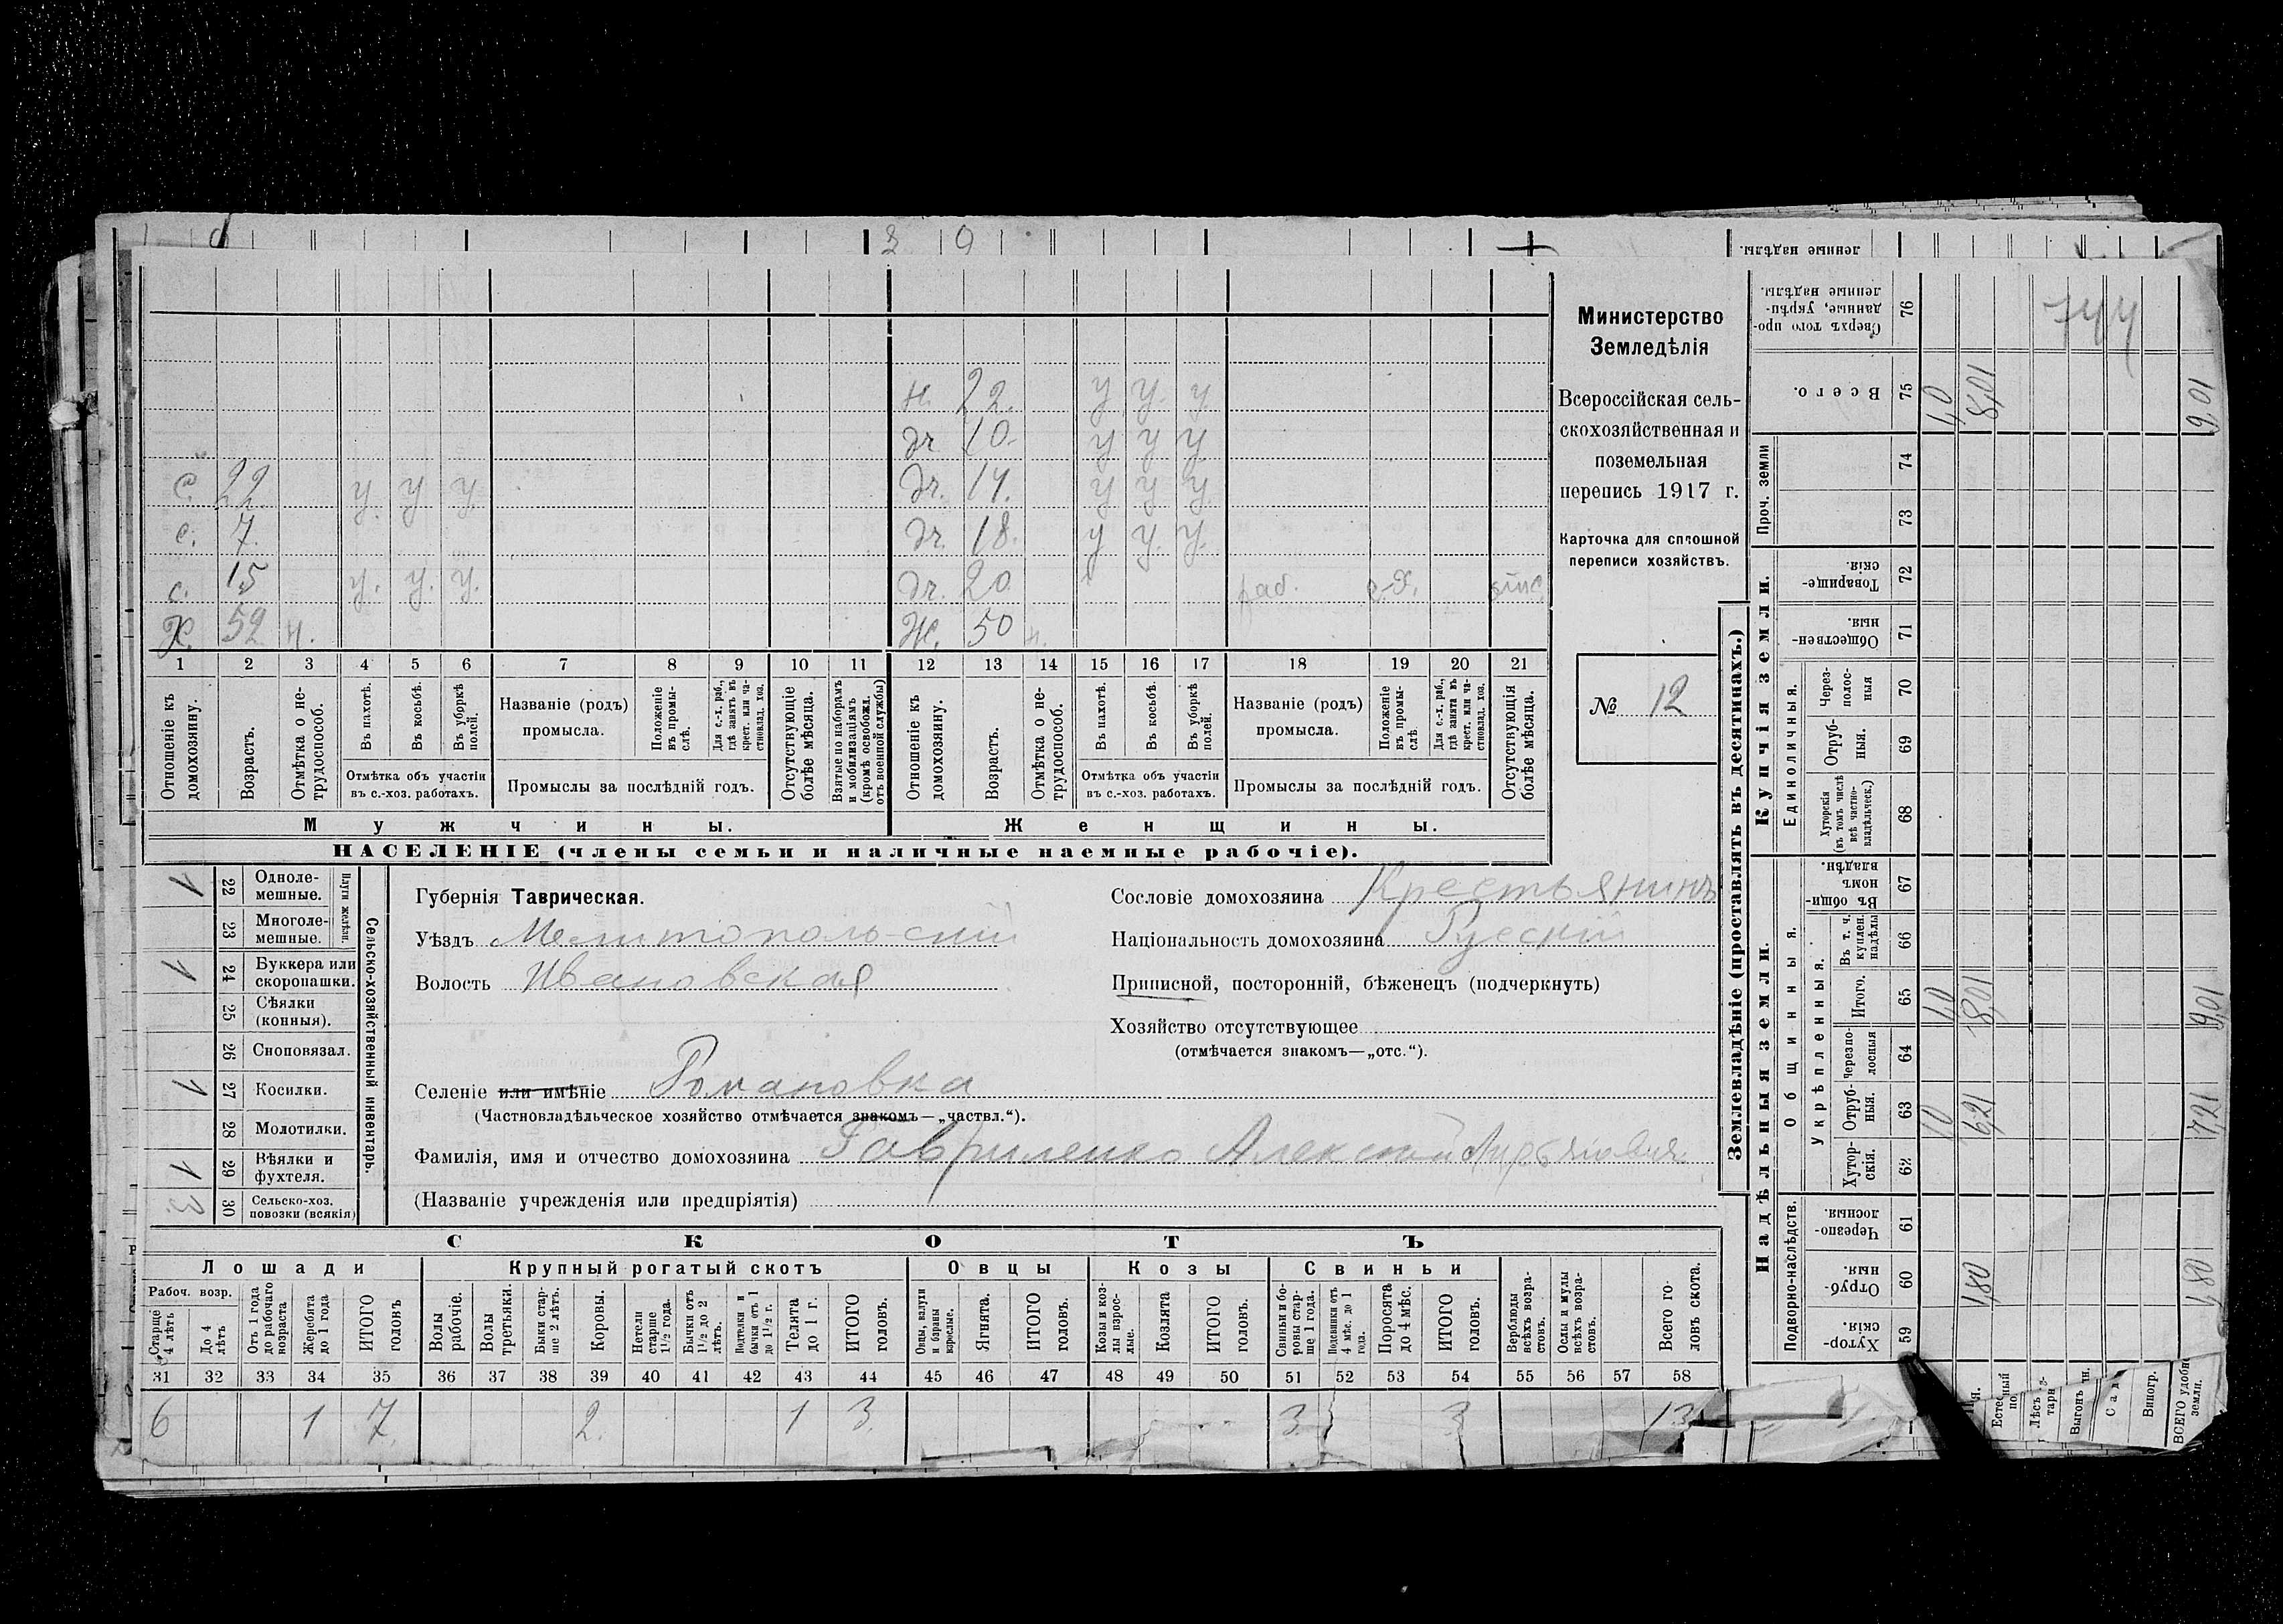 Министерство
Земледѣлія
Всероссійская сель-
скохозяйственная и
поземельная
перепись 1917 г.
Карточка для сплошной
переписи хозяйствъ.
№ 12
н. 22. у у. у.
дч 10. у у у
с. 22 у. у у. дч. 14. у у у.
с. 7. дч. 18. у у. у.
с. 15 у. у. у. дч. 20 раб. с-х.
Х. 52 н. Ж. 50 н.
1 2 3 4 5 6 7 8 9 10 11 12 13 14 15 16 17 18 19 20 21
Отношеніе къ домохозяину.
Возрастъ.
Отмѣтка о не-трудоспособ.
Въ пахотѣ.
Въ косьбѣ.
Въ уборкѣ полей.
Отмѣтка объ участіи
въ с.-хоз. работахъ.
Названіе (родъ)
промысла.
Положеніе въ промы-слѣ.
Для с.-х. раб., гдѣ занятъ въ крест. или ча-стновлад. хоз.
Промыслы за послѣдній годъ.
Отсутствующіе болѣе мѣсяца.
Взятые по наборамъ и мобилизаціямъ (кромѣ освобожд. отъ военной службы)
Отношеніе къ домохозяину.
Возрастъ.
Отмѣтка о не-трудоспособ.
Въ пахотѣ.
Въ косьбѣ.
Въ уборкѣ полей.
Отмѣтка объ участіи
въ с.-хоз. работахъ.
Названіе (родъ)
промысла.
Положеніе въ промы-слѣ.
Для с.-х. раб., гдѣ занята въ крест. или ча-стновлад. хоз.
Промыслы за послѣдній годъ.
Отсутствующія болѣе мѣсяца.
Мужчины.
Женщины.
НАСЕЛЕНІЕ (члены семьи и наличные наемные рабочіе).
Сельско-хозяйственный инвентарь.
Плуги желѣзн.
1 22 Одноле-мешные.
23 Многоле-мешные.
1 24 Буккера или скоропашки.
25 Сѣялки (конныя).
26 Сноповязал.
1 27 Косилки.
28 Молотилки.
1 29 Вѣялки и фухтеля.
3 30 Сельско-хоз. повозки (всякія)
Губернія Таврическая.
Уѣздъ Мелитопольский
Волость Ивановская
Селеніе или имѣніе Романовка
(Частновладѣльческое хозяйство отмѣчается знакомъ—„частвл.“).
Фамилія, имя и отчество домохозяина Гавриленко Алексѣй
(Названіе учрежденія или предпріятія)
Сословіе домохозяина Крестьянинъ
Національность домохозяина Русскій
Приписной, посторонній, бѣженецъ (подчеркнуть)
Хозяйство отсутствующее
(отмѣчается знакомъ—„отс.“).
СКОТЪ
Лошади
Крупный рогатый скотъ
Овцы
Козы
Свиньи
Рабоч. возр.
Старше 4 лѣтъ
До 4 лѣтъ
Отъ 1 года до рабочаго возраста
Жеребята до 1 года
ИТОГО головъ
Волы рабочіе.
Волы третьяки.
Быки стар-ше 2 лѣтъ.
Коровы.
Нетели старше 1½ года.
Бычки отъ 1½ до 2 лѣтъ.
Подтелки и бычки отъ 1 до 1½ г.
Телята до 1 г.
ИТОГО головъ.
Овцы, валухи и бараны взрослые.
Ягнята.
ИТОГО головъ.
Козы и коз-лы взрос-лые.
Козлята
ИТОГО головъ.
Свиньи и бо-ровы стар-ше 1 года.
Подсвинки отъ 4 мѣс. до 1 года.
Поросята до 4 мѣс.
ИТОГО головъ.
Верблюды всѣхъ возра-стовъ.
Ослы и мулы всѣхъ возра-стовъ.
Всего го-ловъ скота.
31 32 33 34 35 36 37 38 39 40 41 42 43 44 45 46 47 48 49 50 51 52 53 54 55 56 57 58
6 1 7. 2. 1 3. 3. 3 13
Землевладѣніе (проставлять въ десятинахъ.)
Надѣльныя земли.
Купчія земли.
Проч. земли
Подворно-наслѣдств.
Общинныя.
Укрѣпленныя.
Единоличныя.
Сверхъ того про-данные, укрѣп-ленные надѣлы. 76 744
Всего. 75 1,0 8,01 9,01
74
73
Товарище-скія. 72
Обществен-ныя. 71
Через-полос-ныя 70
Отруб-ныя. 69
Хуторскія (въ томъ числѣ всѣ частно-владѣльческ.) 68
Въ общи-номъ владѣн. 67
Въ т. ч. куплен. надѣлы 66
Итого. 65 1,0 8,01 9,01
Черезпо-лосныя 64
Отруб-ныя. 63 1,0 6,21 7,21
Хутор-скія. 62
Черезпо-лосныя. 61
Отруб-ныя. 60 1,80 1,80
Хутор-скія. 59
Выгонъ
Виногр.
ВСЕГО удобн земли.
ленные надѣлы.